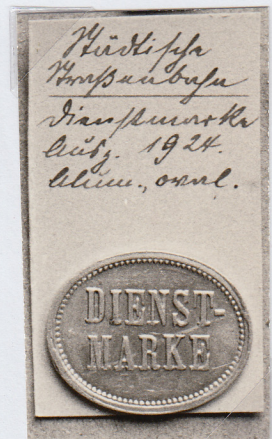 Städtische
Straßenbahn
Dienstmarke
Ausg. 1924.
Alum., oval.
DIENST-
MARKE